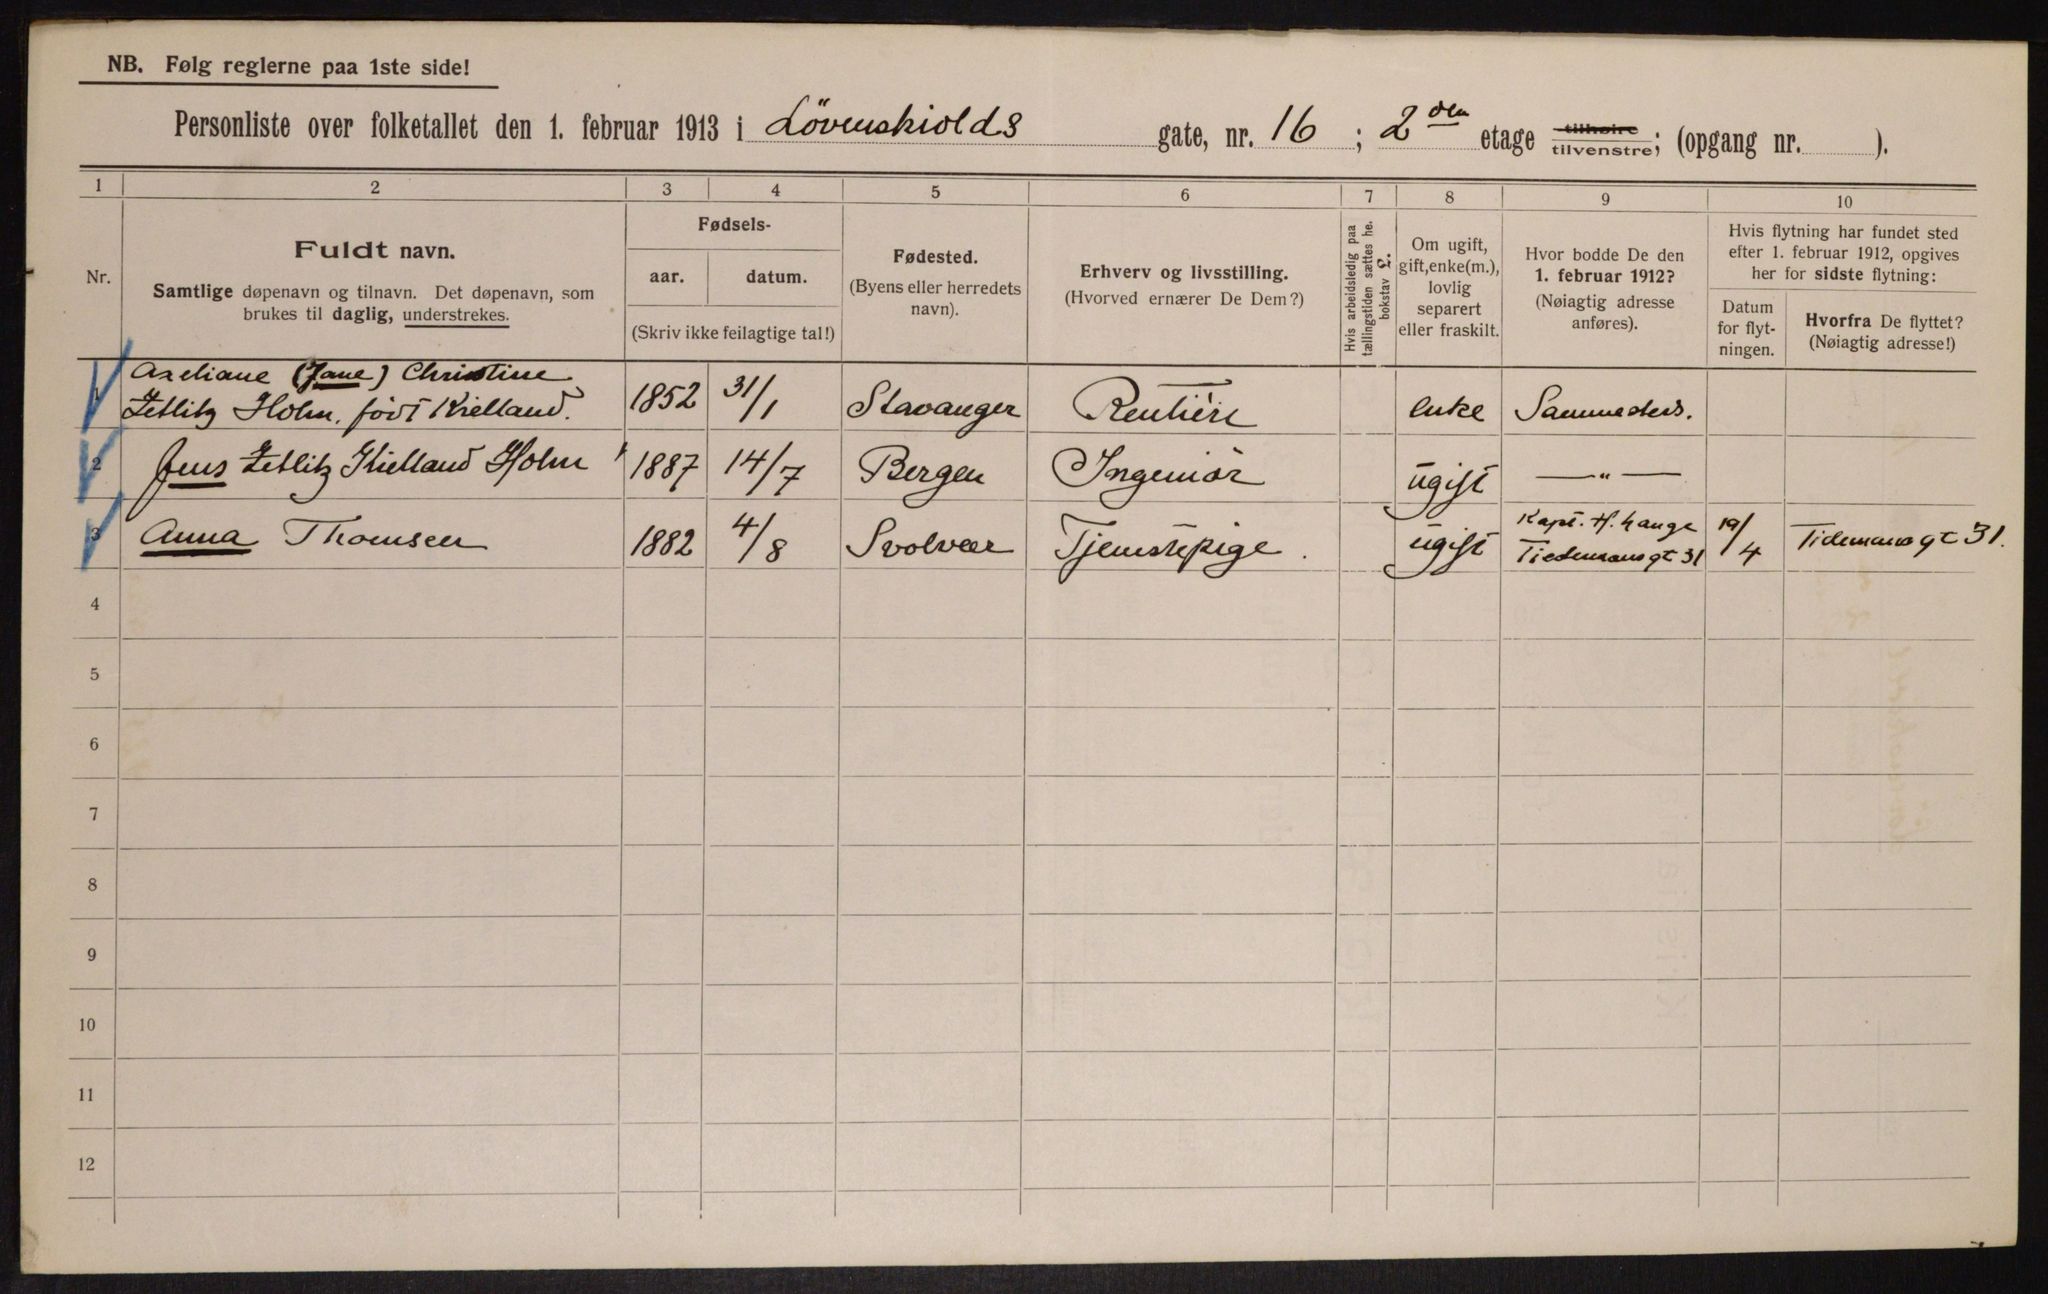 NB. Følg reglerne paa 1ste side!
Personliste over folketallet den 1. februar 1913 i Lövenskiolds gate, nr. 16 ; 2den etage tilhøire tilvenstre; (opgang nr. ).
1 2 3 4 5 6 7 8 9 10
Nr.
Fuldt navn.
Samtlige døpenavn og tilnavn. Det døpenavn, som
brukes til daglig, understrekes.
Fødsels-
aar. datum.
(Skriv ikke feilagtige tal!)
Fødested.
(Byens eller herredets
navn).
Erhverv og livsstilling.
(Hvorved ernærer De Dem?)
Hvis arbeidsledig paa
tællingstiden sættes he.
bokstav L.
Om ugift,
gift, enke(m.),
lovlig
separert
eller fraskilt.
Hvor bodde De den
1. februar 1912?
(Nøiagtig adresse
anføres).
Hvis flytning har fundet sted
efter 1. februar 1912, opgives
her for sidste flytning:
Datum
for flyt-
ningen.
Hvorfra De flyttet?
(Nøiagtig adresse!)
Axeliane (Jane) Christine
1 Zetlitz Holm, född Kielland. 1852 31/1 Stavanger Rentière enke Sammesteds.
2 Jens Zetlitz Kielland Holm 1887 14/7 Bergen Ingeniör ugift — " —
3 Anna Thomsen 1882 4/8 Svolvær Tjenstepige. ugift Kapt. H. Lange
Tiedemansgt 31 19/4 Tidemansgt 31.
4
5
6
7
8
9
10
11
12